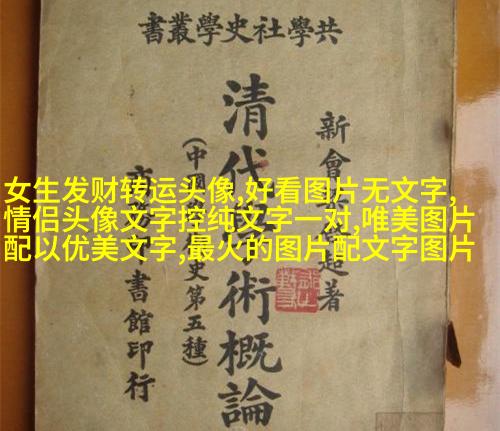 共學社史學叢書
新會超著
清代術概論
(中史第五種)
書館印行
女生发财转运头像,好看图片无文字,
情侣头像文字控纯文字一对,唯美图片
配以优美文字,最火的图片配文字图片